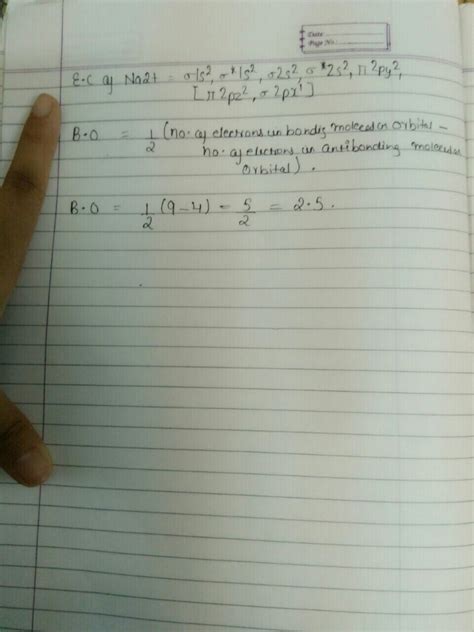 Date
Page No.
E.C of Na2+ = σ1s², σ*1s², σ2s², σ*2s², π2py²,
[π2pz², σ2px¹]
B.O = 1/2 (no. of electrons in bonding molecular orbital –
no. of electrons in antibonding molecular
orbital).
B.O = 1/2 (9-4) = 5/2 = 2.5.